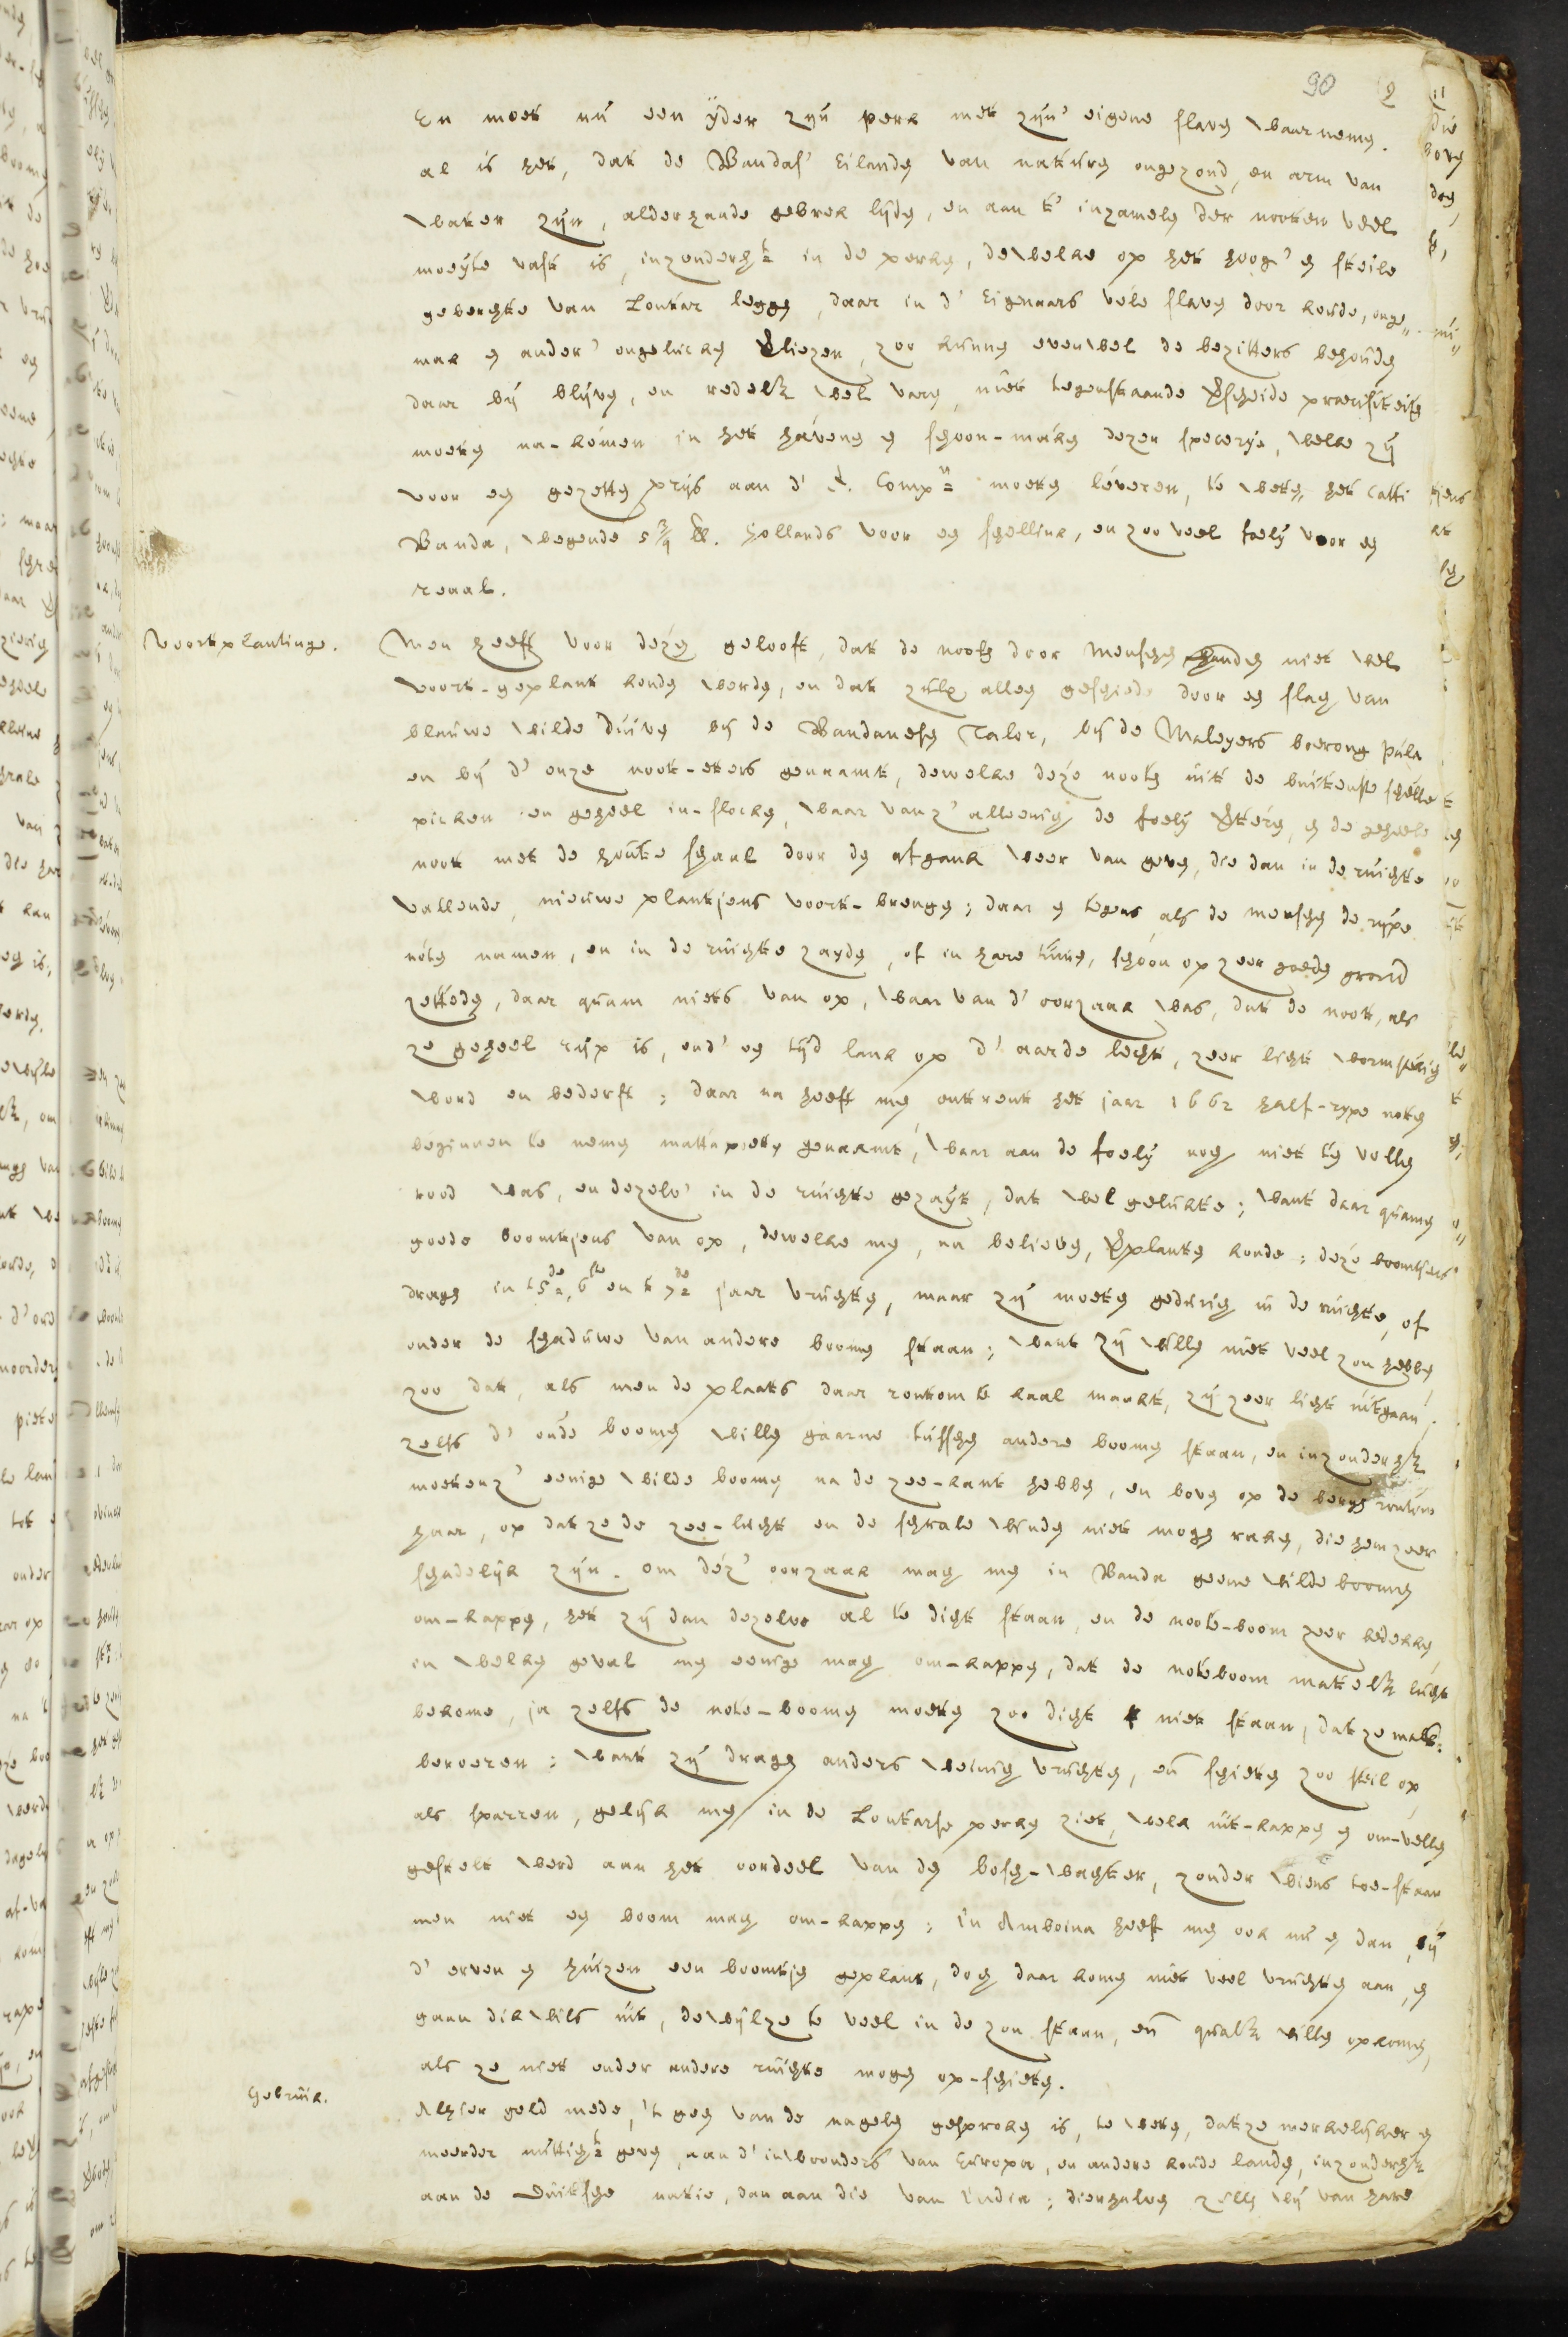 90
En moet nú een ÿder zÿn perk met zÿn' eigene slaven waarnemen.
al is het, dat de Bandas' Eilanden van naturen ongezond, en arm van
water zÿn, alderhande gebrek lÿden, en aan 't inzamelen der nooten veel
moeÿte vast is, inzonderht in de perken, dewelke op het hoog' en steile
gebergte van Lontar leggen, daar in d' Eigenaars vele slaven door koude, onge„
mak en ander' ongelucken verliezen, zoo kunnen evenwel de bezitters behouden
daar bÿ blÿven, en redelk wel varen, niet tegenstaande verscheide præcisiteiten
moeten na-kómen in het hávenen en schoon-máken dezer specerÿe, welke zÿ
voor en gezetten prÿs aan d' E. Compn moeten léveren, te weten, het Catti
Banda, wegende 5 3/4 lb. hollands voor en schellink, en zoo veel foelÿ voor en
reaal.
Voortplantinge.
Men heeft voor dezen gelooft, dat de nooten door menschen handen niet wel
voort-geplant konden werden, en dat zulx alleen geschiede door en slag van
blauwe wilde Duiven bÿ de Bandanesen Talor, bÿ de Maleyers boerong pála
en bÿ d' onze noot-eters genaamt, dewelke deze nooten uit de buitenste schelle
picken en geheel in-slocken, waar van z' alleenig de foelÿ verteren, en de geheele
noot met de houte schaal door den afgank weer van geven, die dan in de ruichte
vallende, nieuwe plantjens voort-brengen; daar en tegens als de menschen de rÿpe
nóten namen, en in de ruichte zayden, of in hare tuinen, schoon op zeer goeden grond
zetteden, daar quam niets van op, waar van d' oorzaak was, dat de noot, als
ze geheel rÿp is, end' en tÿd lank op d' aarde legt, zeer licht wormstekig
word en bederft; daar na heeft men, ontrent het jaar 1662 half-rype noten
beginnen te nemen mattapoety genaamt, waar aan de foelÿ nog niet ten vollen
rood was, en dezelv' in de ruichte gezaÿt, dat wel gelukte; want daar quamen
goede boomtjens van op, dewelke men, na believen, verplanten konde; deze boomtjens
dragen in 't 5de, 6ste en 't 7de jaar vruchten, maar zÿ moeten gedurig in de ruichte, of
onder de schaduwe van andere boomen staan; want zÿ willen niet veel zon hebben
zoo dat, als men de plaats daar rontom te kaal maakt, zÿ zeer licht uitgaan.
zelfs d' oude boomen willen gaarne tusschen andere boomen staan, en inzonderhk
moetenz' eenige wilde boomen na de zee-kant hebben, en boven op de bergen rontom
haar, op dat ze de zee-lucht en de schrale winden niet mogen raken, die hem zeer
schadelÿk zÿn. Om déz' oorzaak mag men in Banda geene wilde boomen
om-kappen, het zÿ dan dezelve al te dicht staan, en de note-boom zeer bedekken,
in welken geval men eenige mag om-kappen, dat de noteboom matelk lucht
bekome, ja zelfs de note-boomen moeten zoo dicht niet staan, dat ze malk.
beroeren: want zÿ dragen anders weinig vruchten, en schieten zoo steil op
als sparren, gelÿk men in de Lontarse perken ziet, welk uit-kappen en om-vellen
gestelt werd aan het oordeel van den bosch-wachter, zonder wiens toe-staan
men niet en boom mag om-kappen; In Amboina heeft men ook nu en dan, bÿ
d' erven en huizen een boomtje geplant, doch daar komen niet veel vruchten aan, en
gaan dikwils uit, dewÿlze te veel in de zon staan, en qualk willen opkomen,
als ze niet onder andere ruichte mogen op-schieten.
Gebruik.
Alhier geld mede, 't geen van de nagelen gesproken is, te weten, datze merkelÿker en
meerder nuttight geven, aan d' inwoonders van Europa, en andere koude landen, inzonderhk
aan de Duitsche natie, dan aan die van India; dierhalven zullen wÿ van hare